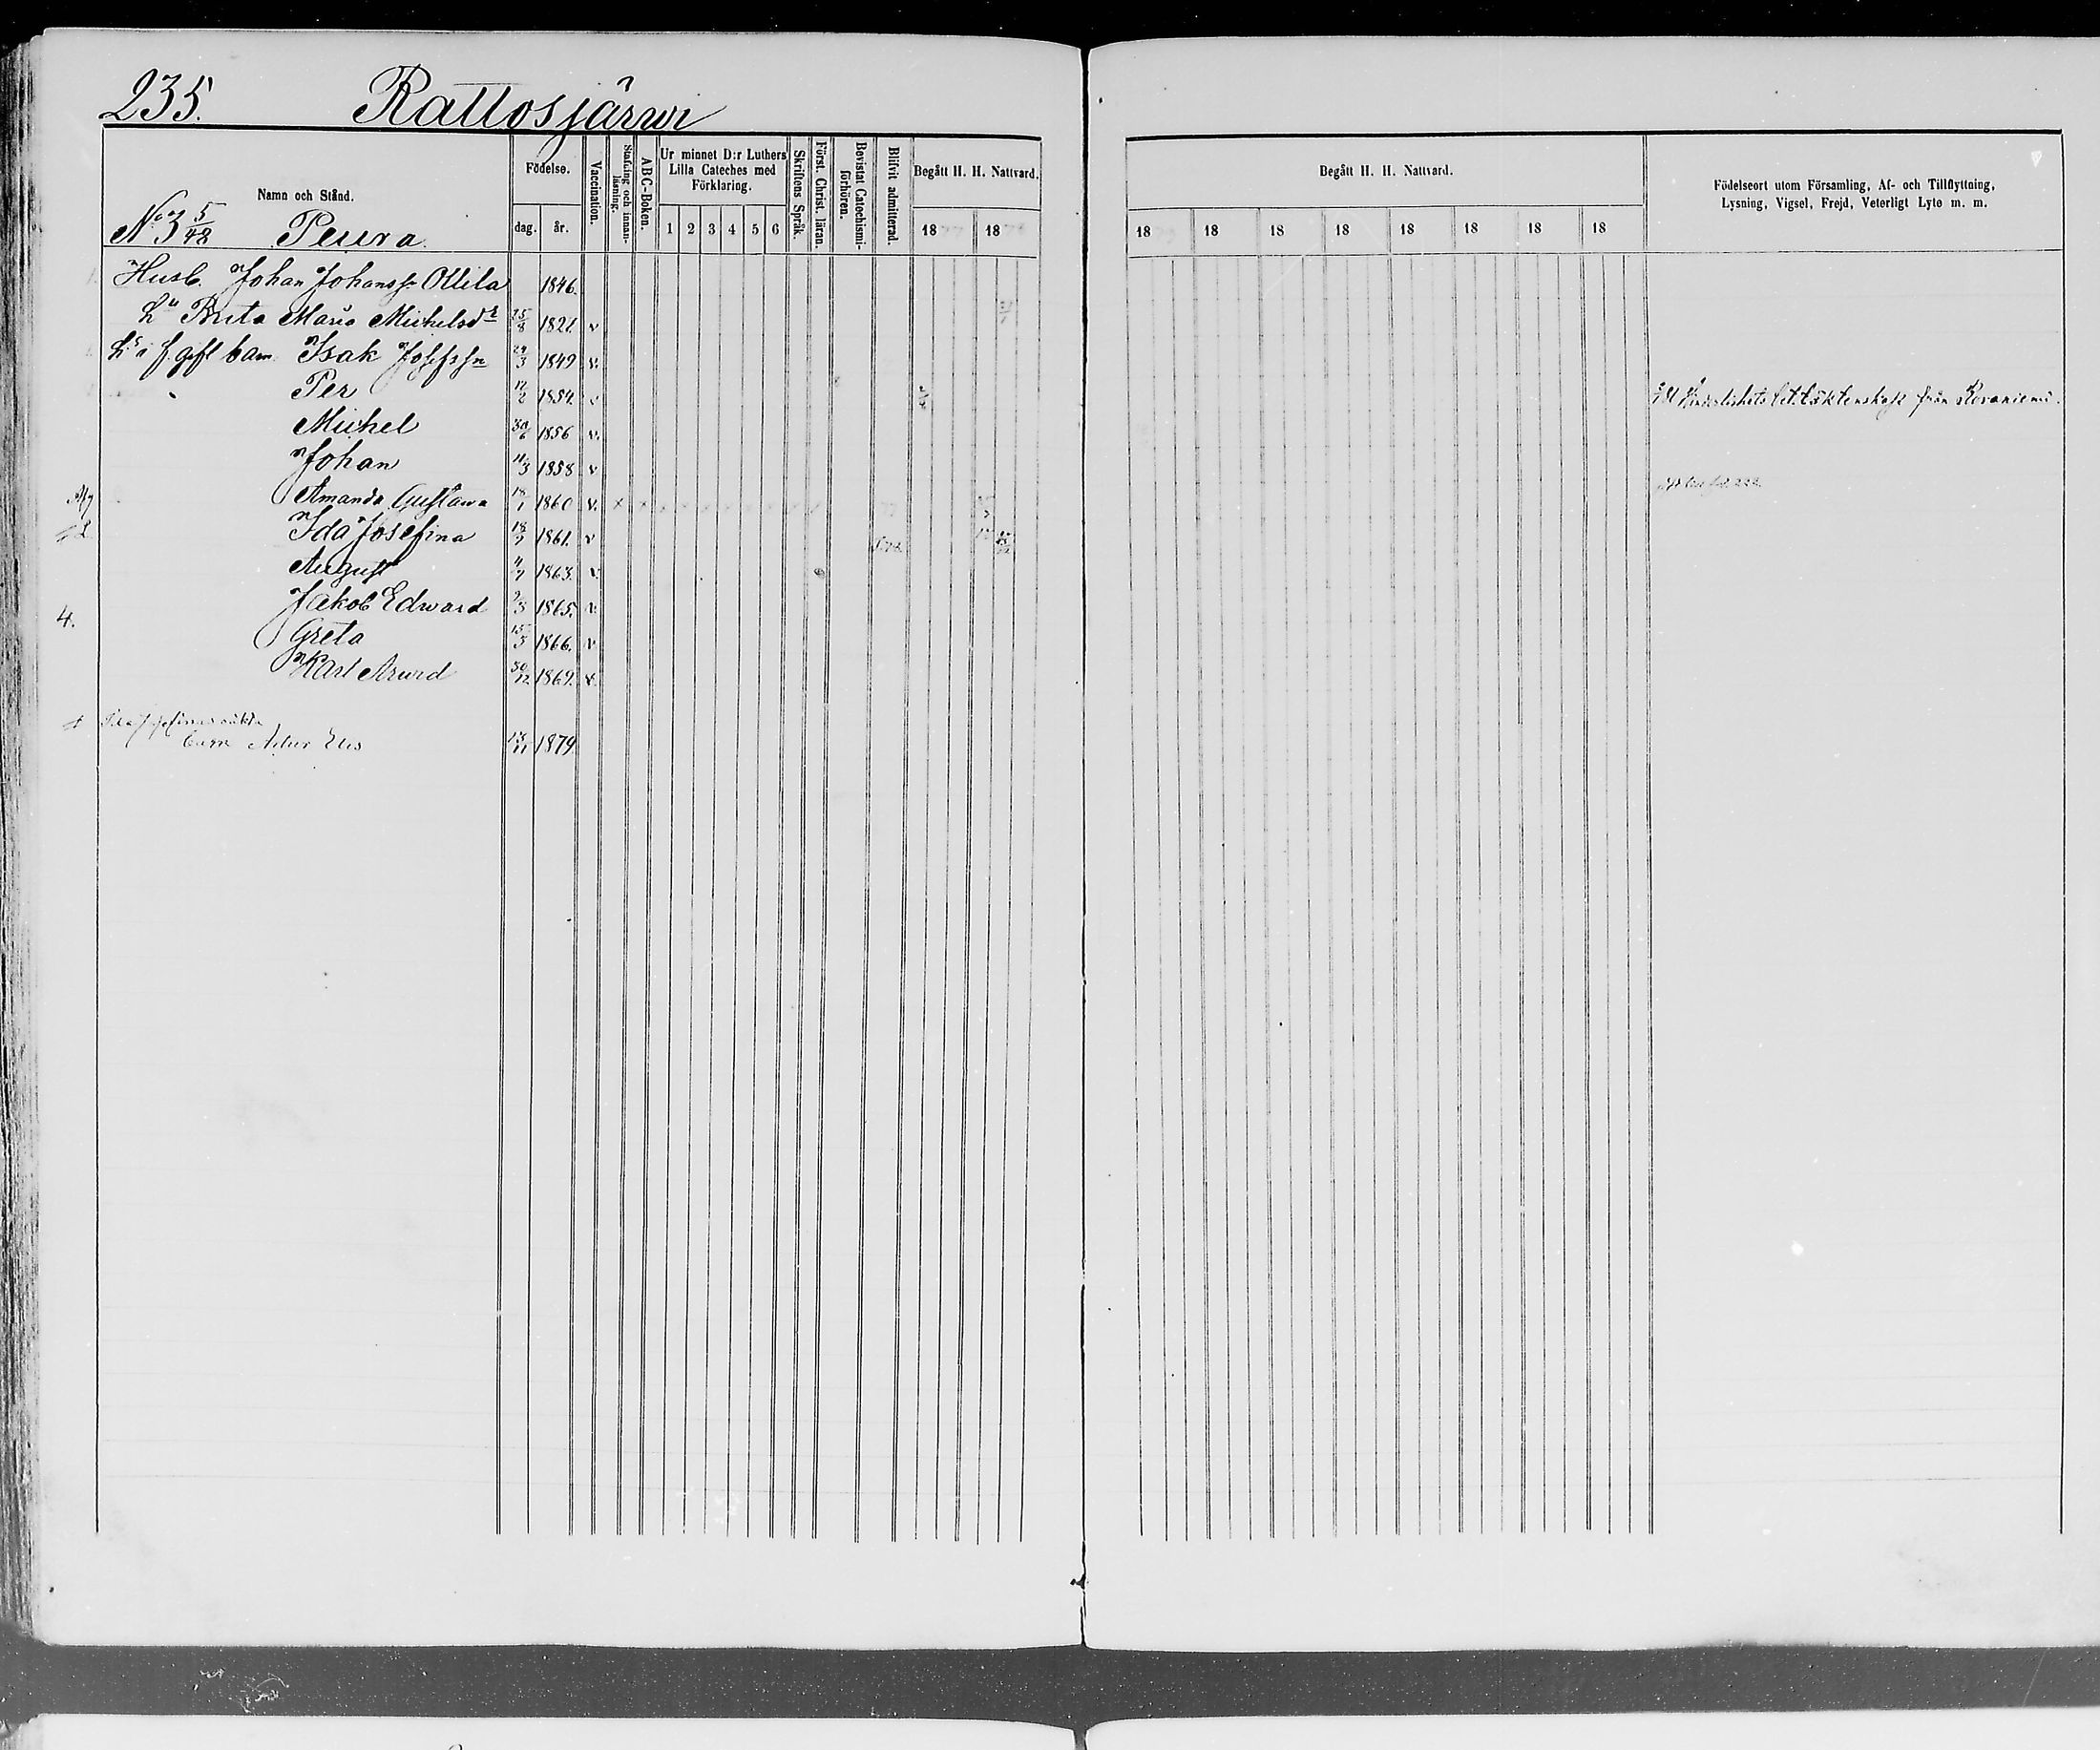 235. Rattosjärwi
Namn och Stånd.
Födelse.
dag. år.
Vaccination.
Stafning och innan-läsning.
ABC-Boken.
Ur minnet D:r Luthers Lilla Cateches med Förklaring.
1 2 3 4 5 6
Skriftens Språk.
Först. Christ. läran.
Bevistat Catechismi-förhören.
Blifvit admitterad.
Begått H. H. Nattvard.
18 18
Begått H. H. Nattvard.
18 18 18 18 18 18 18 18
Födelseort utom Församling, Af- och Tillflyttning,
Lysning, Vigsel, Frejd, Veterligt Lyte m. m.
No 3 5/48 Peura.
Husb. Johan Johanss. Ollila 1846.
Hu Brita Maria Michelsdr 25/8 1821 v
Hs i f. gift barn Isak Josefsn 29/3 1849 v.
Per 12/2 1854. v från Rovaniemi.
Michel 30/6 1856 v.
Johan 11/3 1858 v
Amanda Gustava 18/1 1860 v. x x
Ida Josefina 18/7 1861. v
August 4/7 1863. v.
Jakob Edward 2/3 1865. v.
4. Greta 15/3 1866. v
Karl Arvid 30/12 1869. v.
Ida Josefinas oäkta
barn Artur Elis 13/11 1879